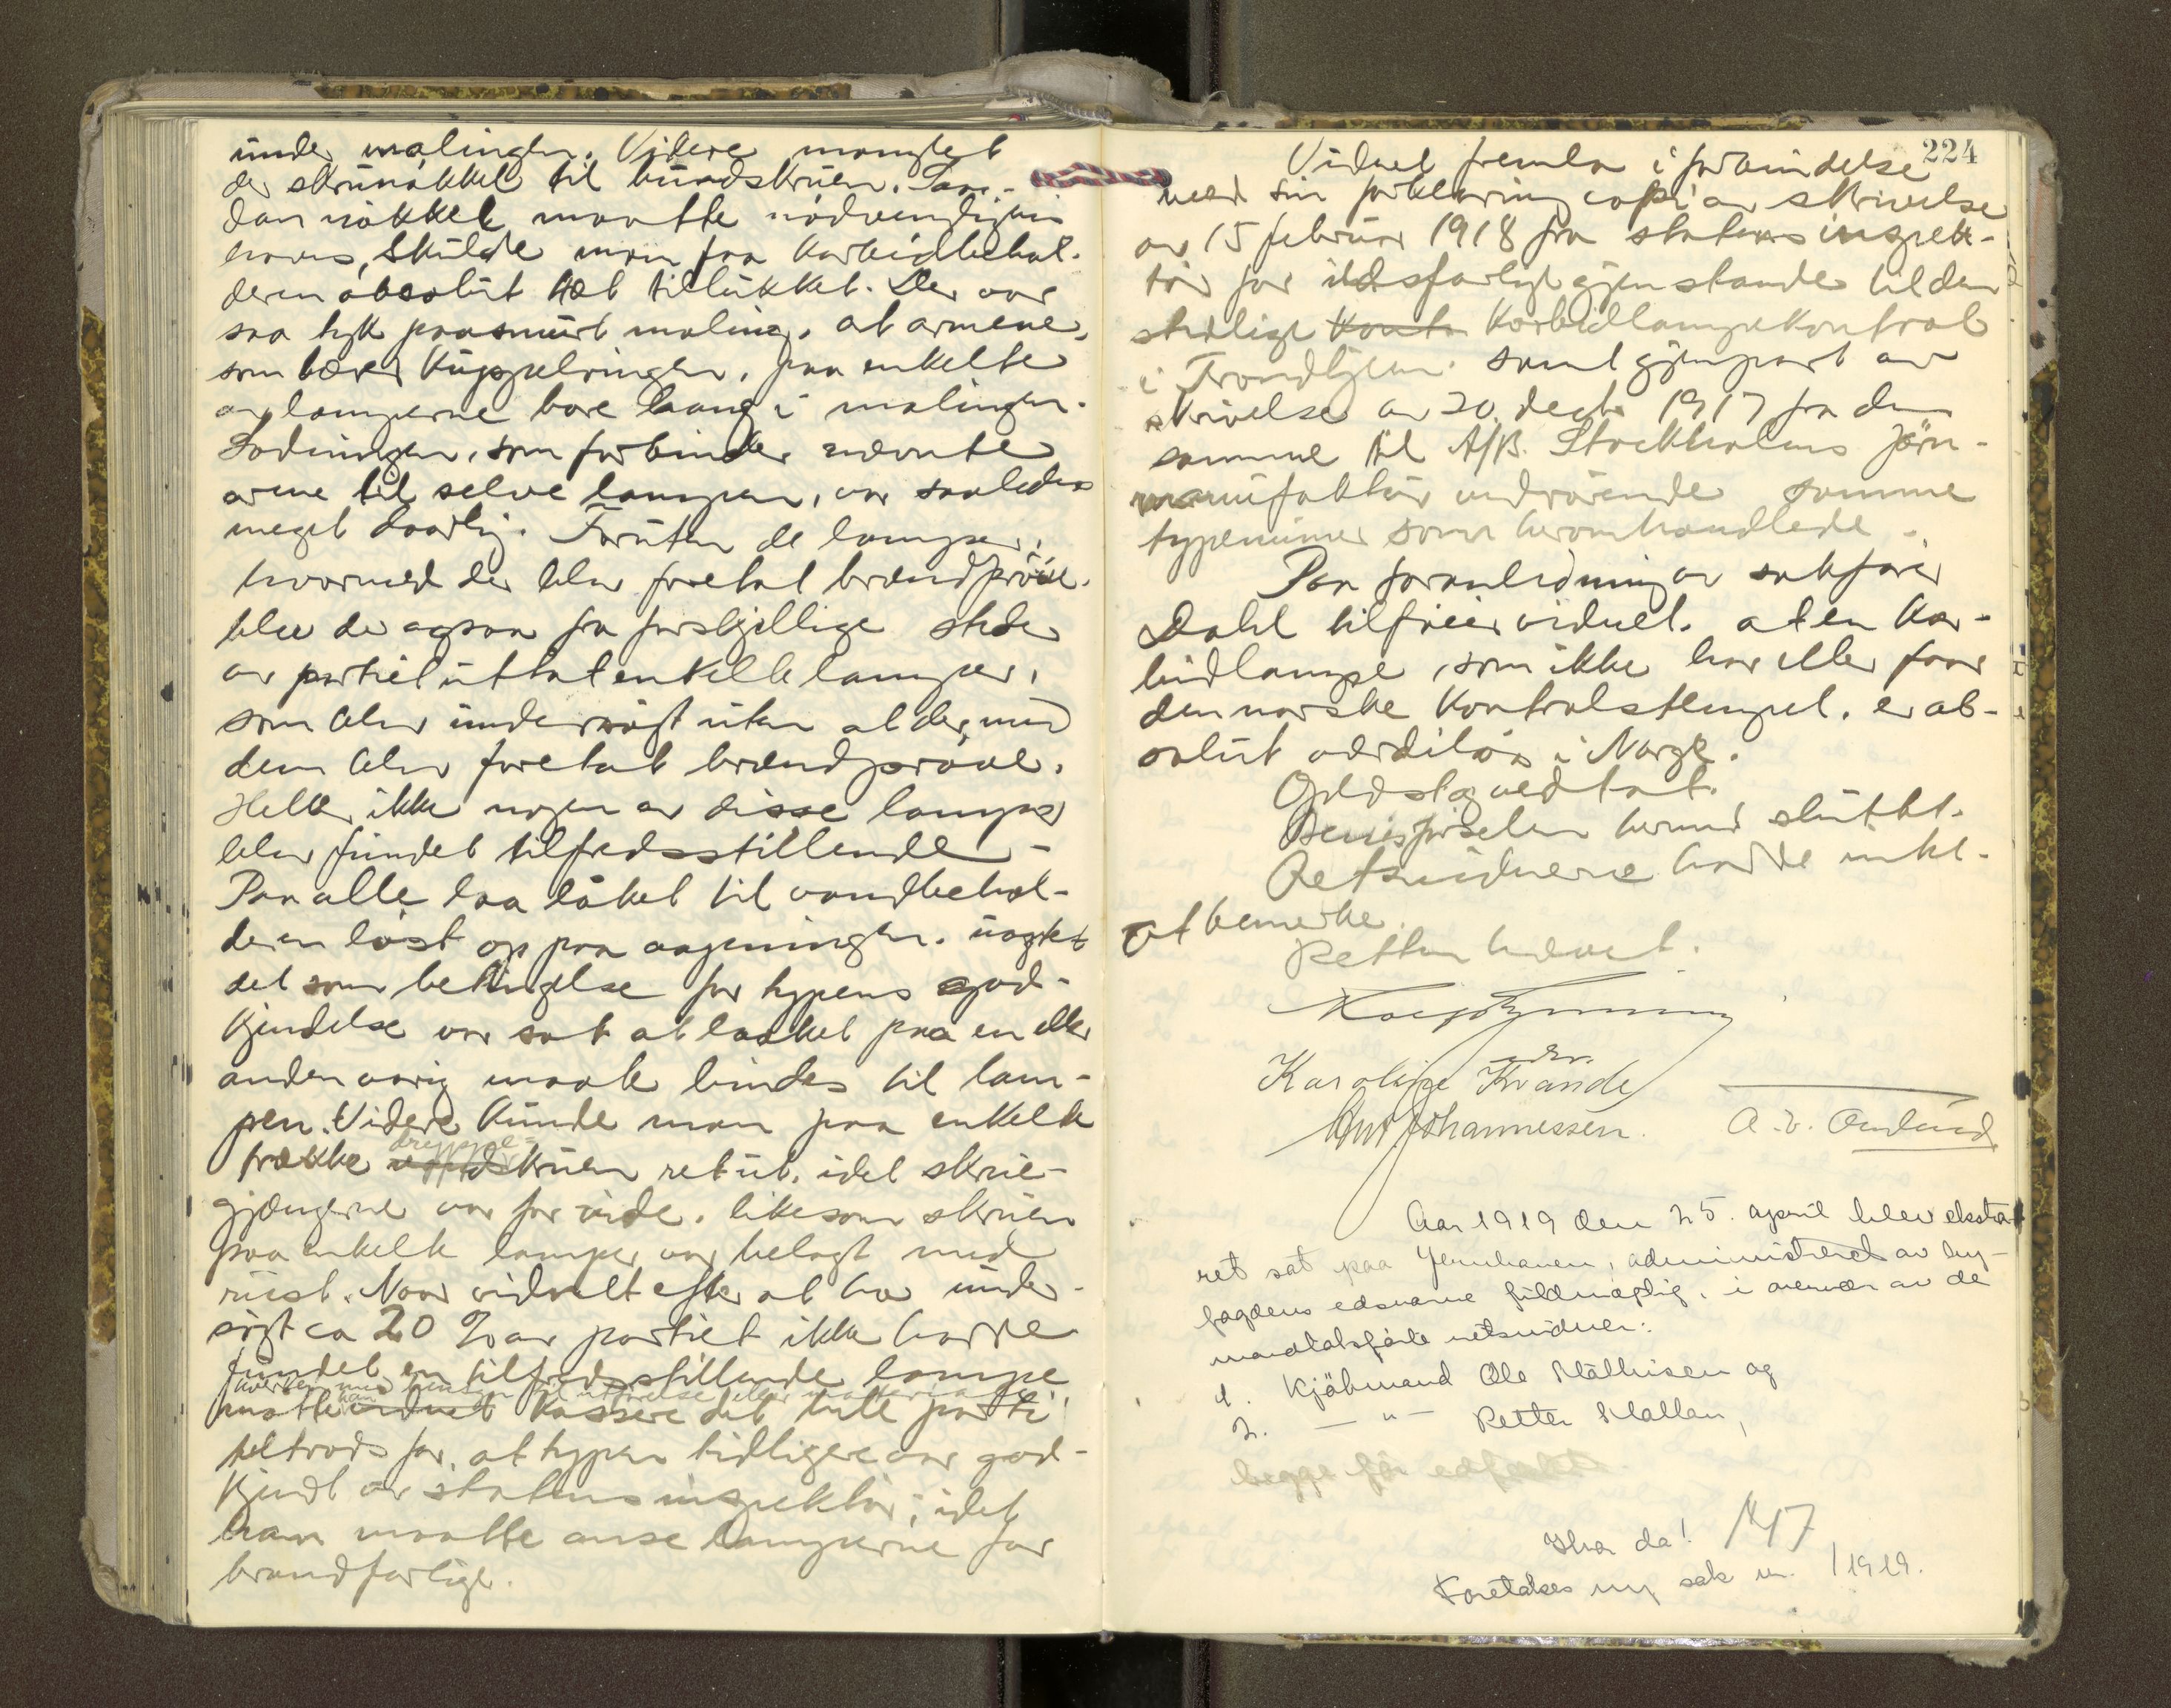 under malingen. Videre manglet
der skrunøkkel til bundskruen. Saa-
dan nøkkel maatte nødvendigvis
haves, skulde man faa karbidbehol-
deren absolut tæt tillukket. Der var
saa tyk paasmurt maling, at armene,
som bærer kuppelringen, paa enkelte
av lamperne bare hang i malingen.
Lodningen, som forbinder nævnte
arme til selve lampen, var saaledes
meget daarlig. Foruten de lamper,
hvormed der blev foretat brændprøve,
blev der ogsaa fra forskjellige steder
av partiet uttat enkelte lamper,
som blev undersøgt uten at der med
dem blev foretat brændprøve.
Heller ikke nogen av disse lamper
blev fundet tilfredsstillende -
Paa alle laa låket til vandbehol-
deren løst op paa aapningen, uagtet
det som betingelse for typens god-
kjendelse var sat at laaket paa en eller
anden varig maate bindes til lam-
pen. Videre kunde man paa enkelte
dryppe-
trække vandskruen ret ut, idet skrue-
gjængerne var for vide, likesom skruen
paa enkelte lamper var belagt med
rust. Naar vidnet efter at ha under-
søgt ca 20 % av partiet ikke hadde
fundet en tilfredsstillende lampe
hverken med hensyn til utførelse eller materiale
maatte han vidnet kassere det hele parti
tiltrods for, at typen tidligere var god-
kjendt av statens inspektør, idet
han maatte anse lamperne for
brandfarlige.
224
Vidnet fremla i forbindelse
med sin forklaring copi av skrivelse
av 15 februar 1918 fra statens inspek-
tør for ildsfarlige gjenstande til den
stedlige Kont. Karbidlampekontrol
i Trondhjem. samt gjenpart av
skrivelse av 20. decbr 1917 fra den
samme til A/B. Stockholms Järn-
manufaktur vedrørende samme
typenumer som heromhandlede.
Paa foranledning av sakfører
Dahl tilføier vidnet, at en kar-
bidlampe, som ikke har eller faar
den norske kontrolstempel, er ab-
solut værdiløs i Norge.
Oplæst og vedtat.
Bevisførselen hermed sluttet.
Retsvidnerne hadde intet
at bemerke.
Retten hævet.
edsv.
Karoline Kvande
Johannessen. A. v.
Aar 1919 den 25. april blev ekstra-
ret sat paa Jernhaven, administreret av by-
fogdens edsvorne fuldmægtig, i overvær av de
mandtalsførte retsvidner:
1. Kjøbmand Ole Mathisen og
2. — " — Petter Mallan,
begge før edfæstet.
Hva da! 147
Foretokes ny sak nr. /1919.